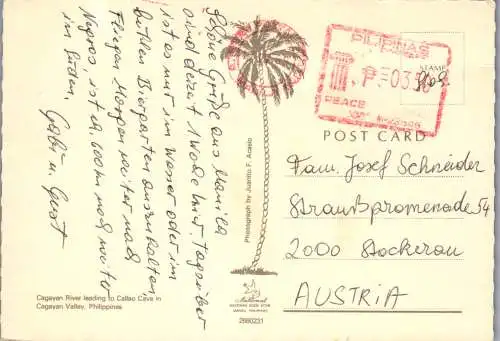 Schöne Grüße aus Manila
sind derzeit 1 Woche hier, Tagsüber
ist es nur im Wasser oder im
kühlen Biergarten auszuhalten,
Fliegen Morgen weiter nach
Negros, ist ca. 600 km noch weiter
im Süden. Gabi u. Gust
PILIPINAS
STAMP
PEACE
POST CARD
Fam. Josef Schneider
Straußpromenade 54
2000 Stockerau
AUSTRIA
Photograph by Juanito F. Acasio
Cagayan River leading to Callao Cave in
Cagayan Valley, Philippines
National
BOOK STORE
MANILA, PHILIPPINES
2680231